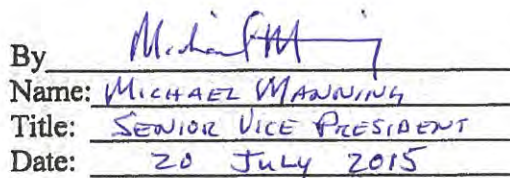 By
Name: MICHAEL MANNING
Title: SENIOR VICE PRESIDENT
Date: 20 JULY 2015